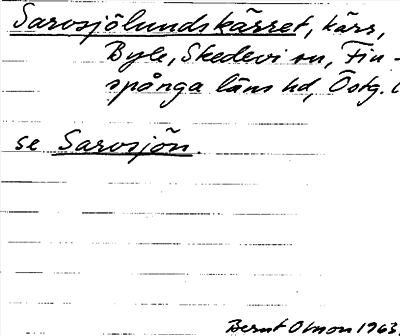 Sarvsjölundskärret, kärr,
Byle, Skedevi sn, Fin-
spånga läns hd, Östg.
se Sarvsjön.
Bernt Olsson 1963.